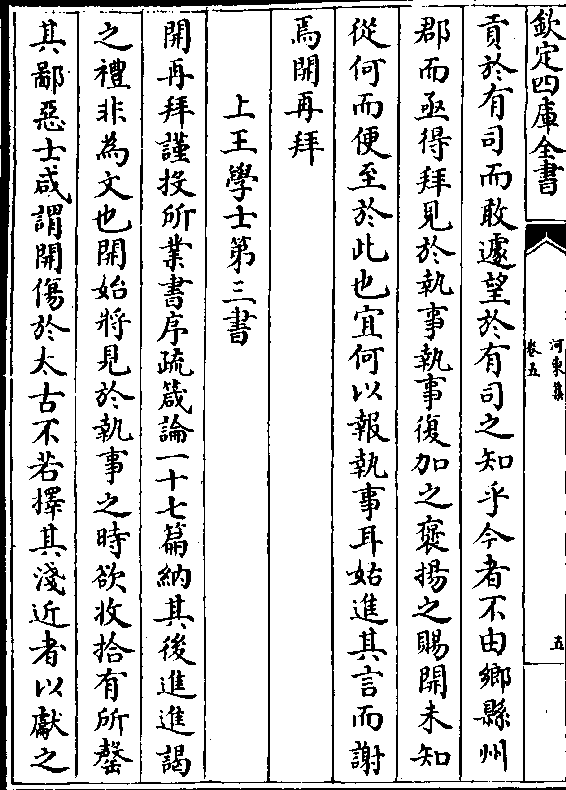 欽定四庫全書
河東集
卷五
五
貢於有司而敢遽望於有司之知乎今者不由鄉縣州
郡而亟得拜見於執事執事復加之褒揚之賜開未知
從何而便至於此也宜何以報執事耳姑進其言而謝
焉開再拜
上王學士第三書
開再拜謹投所業書序疏箴論一十七篇納其後進進謁
之禮非為文也開始將見於執事之時欲收拾有所罄
其鄙惡士咸謂開傷於太古不若擇其淺近者以獻之